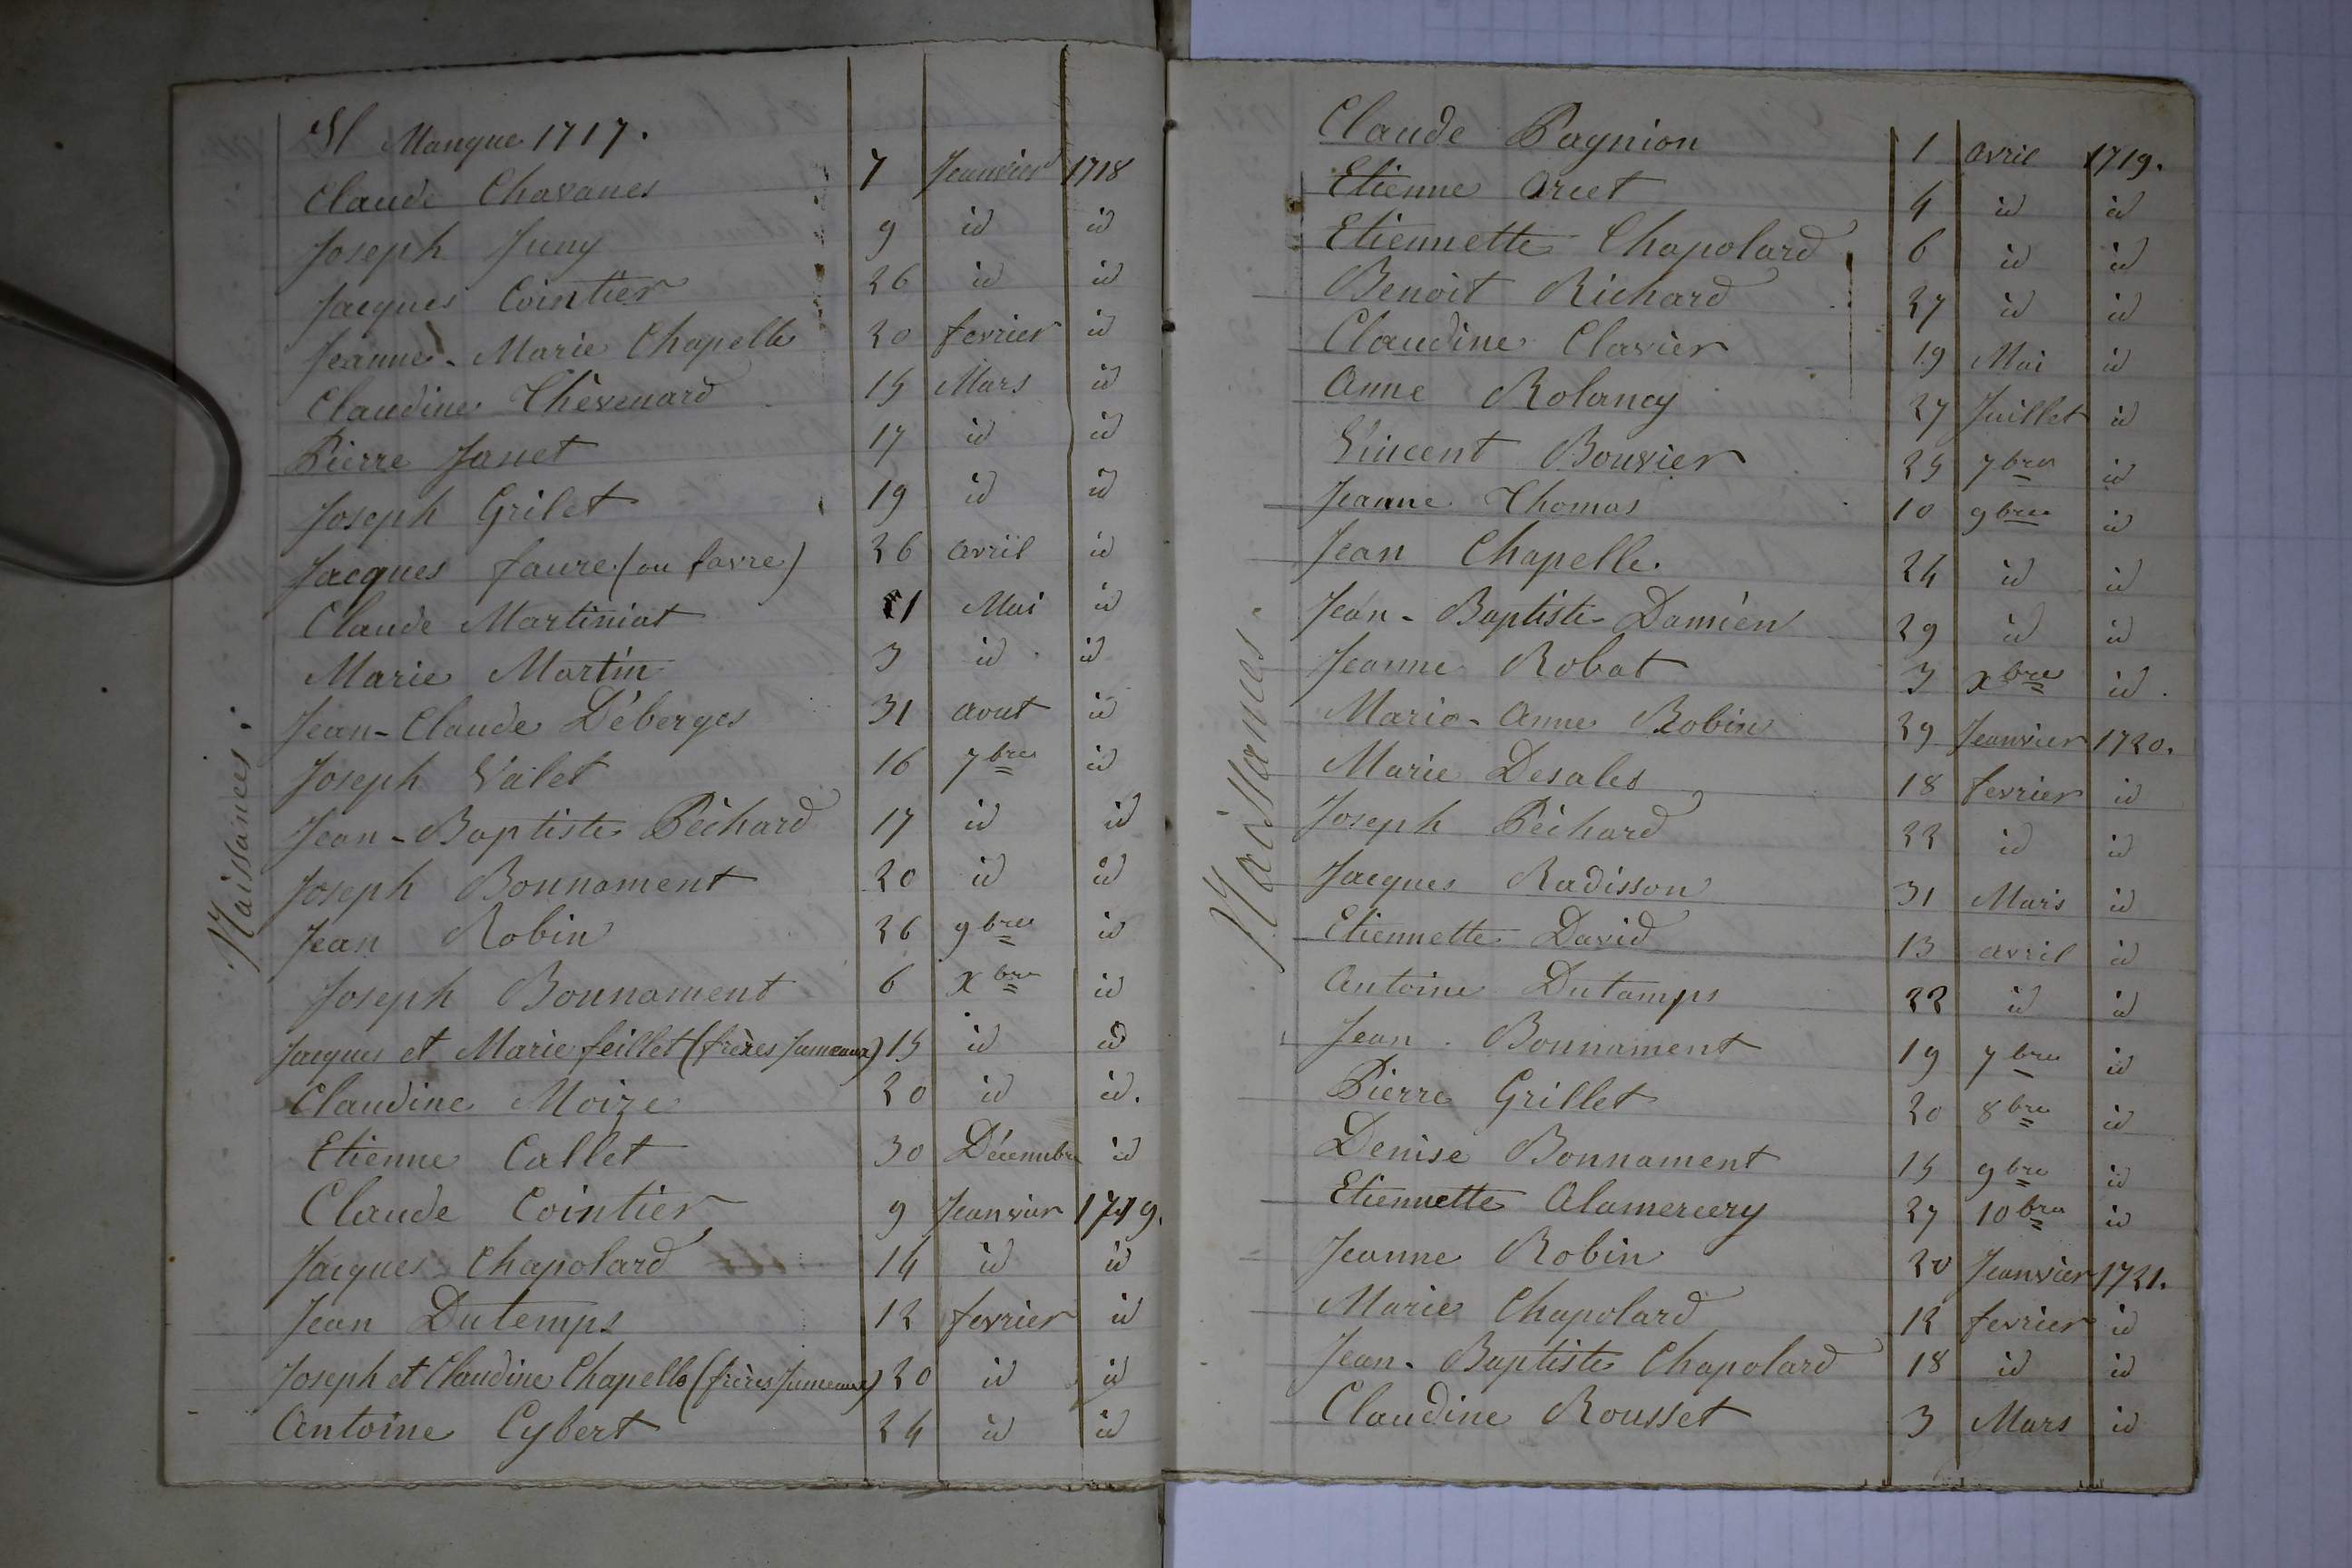 Il Manque 1717.
Claude Chavanes 7 Jeanvier 1718
Joseph Juny 9 id id
Jacques Cointier 26 id id
Jeanne-Marie Chapelle 20 fevrier id
Claudine Thèvenard 15 Mars id
Pierre Janet 17 id id
Joseph Grilet 19 id id
Jacques faure (ou favre) 26 avril id
Claude Martiniat 1 Mai id
Marie Martin 3 id id
Jean-Claude Déberges 31 aout id
Joseph Valet 16 7bre id
Jean-Baptiste Péchard 17 id id
Joseph Bonnament 20 id id
Jean Robin 26 9bre id
Joseph Bonnament 6 Xbre id
Jacques et Marie feillet (frères Jumeaux) 15 id id
Claudine Moize 20 id id.
Etienne Callet 30 Décembre id
Claude Cointier 9 Jeanvier 1719.
Jacques Chapolard 14 id id
Jean Dutemps 12 fevrier id
Joseph et Claudine Chapelle (frères Jumeaux) 20 id id
Antoine Cybert 24 id id
Naissances.
Claude Pagnion 1 avril 1719.
Etienne Arcet 4 id id
Etiennette Chapolard 6 id id
Benoit Richard 27 id id
Claudine Clavier 19 Mai id
Anne Rolancy 27 Juillet id
Vincent Bouvier 25 7bre id
Jeanne Thomas 10 9bre id
Jean Chapelle. 24 id id
Jean-Baptiste-Damien 29 id id
Jeanne Robat 3 Xbre id.
Marie-Anne Robin 29 Jeanvier 1720.
Marie Desales 18 fevrier id
Joseph Péchard 22 id id
Jacques Radisson 31 Mars id
Etiennette David 13 avril id
Antoine Dutamps 22 id id
Jean Bonnament 19 7bre id
Pierre Grillet 20 8bre id
Denise Bonnament 15 9bre id
Etiennette Alamercery 27 10bre id
Jeanne Robin 20 Jeanvier 1721.
Marie Chapolard 12 fevrier id
Jean-Baptiste Chapolard 18 id id
Claudine Rousset 3 Mars id
Naissances.